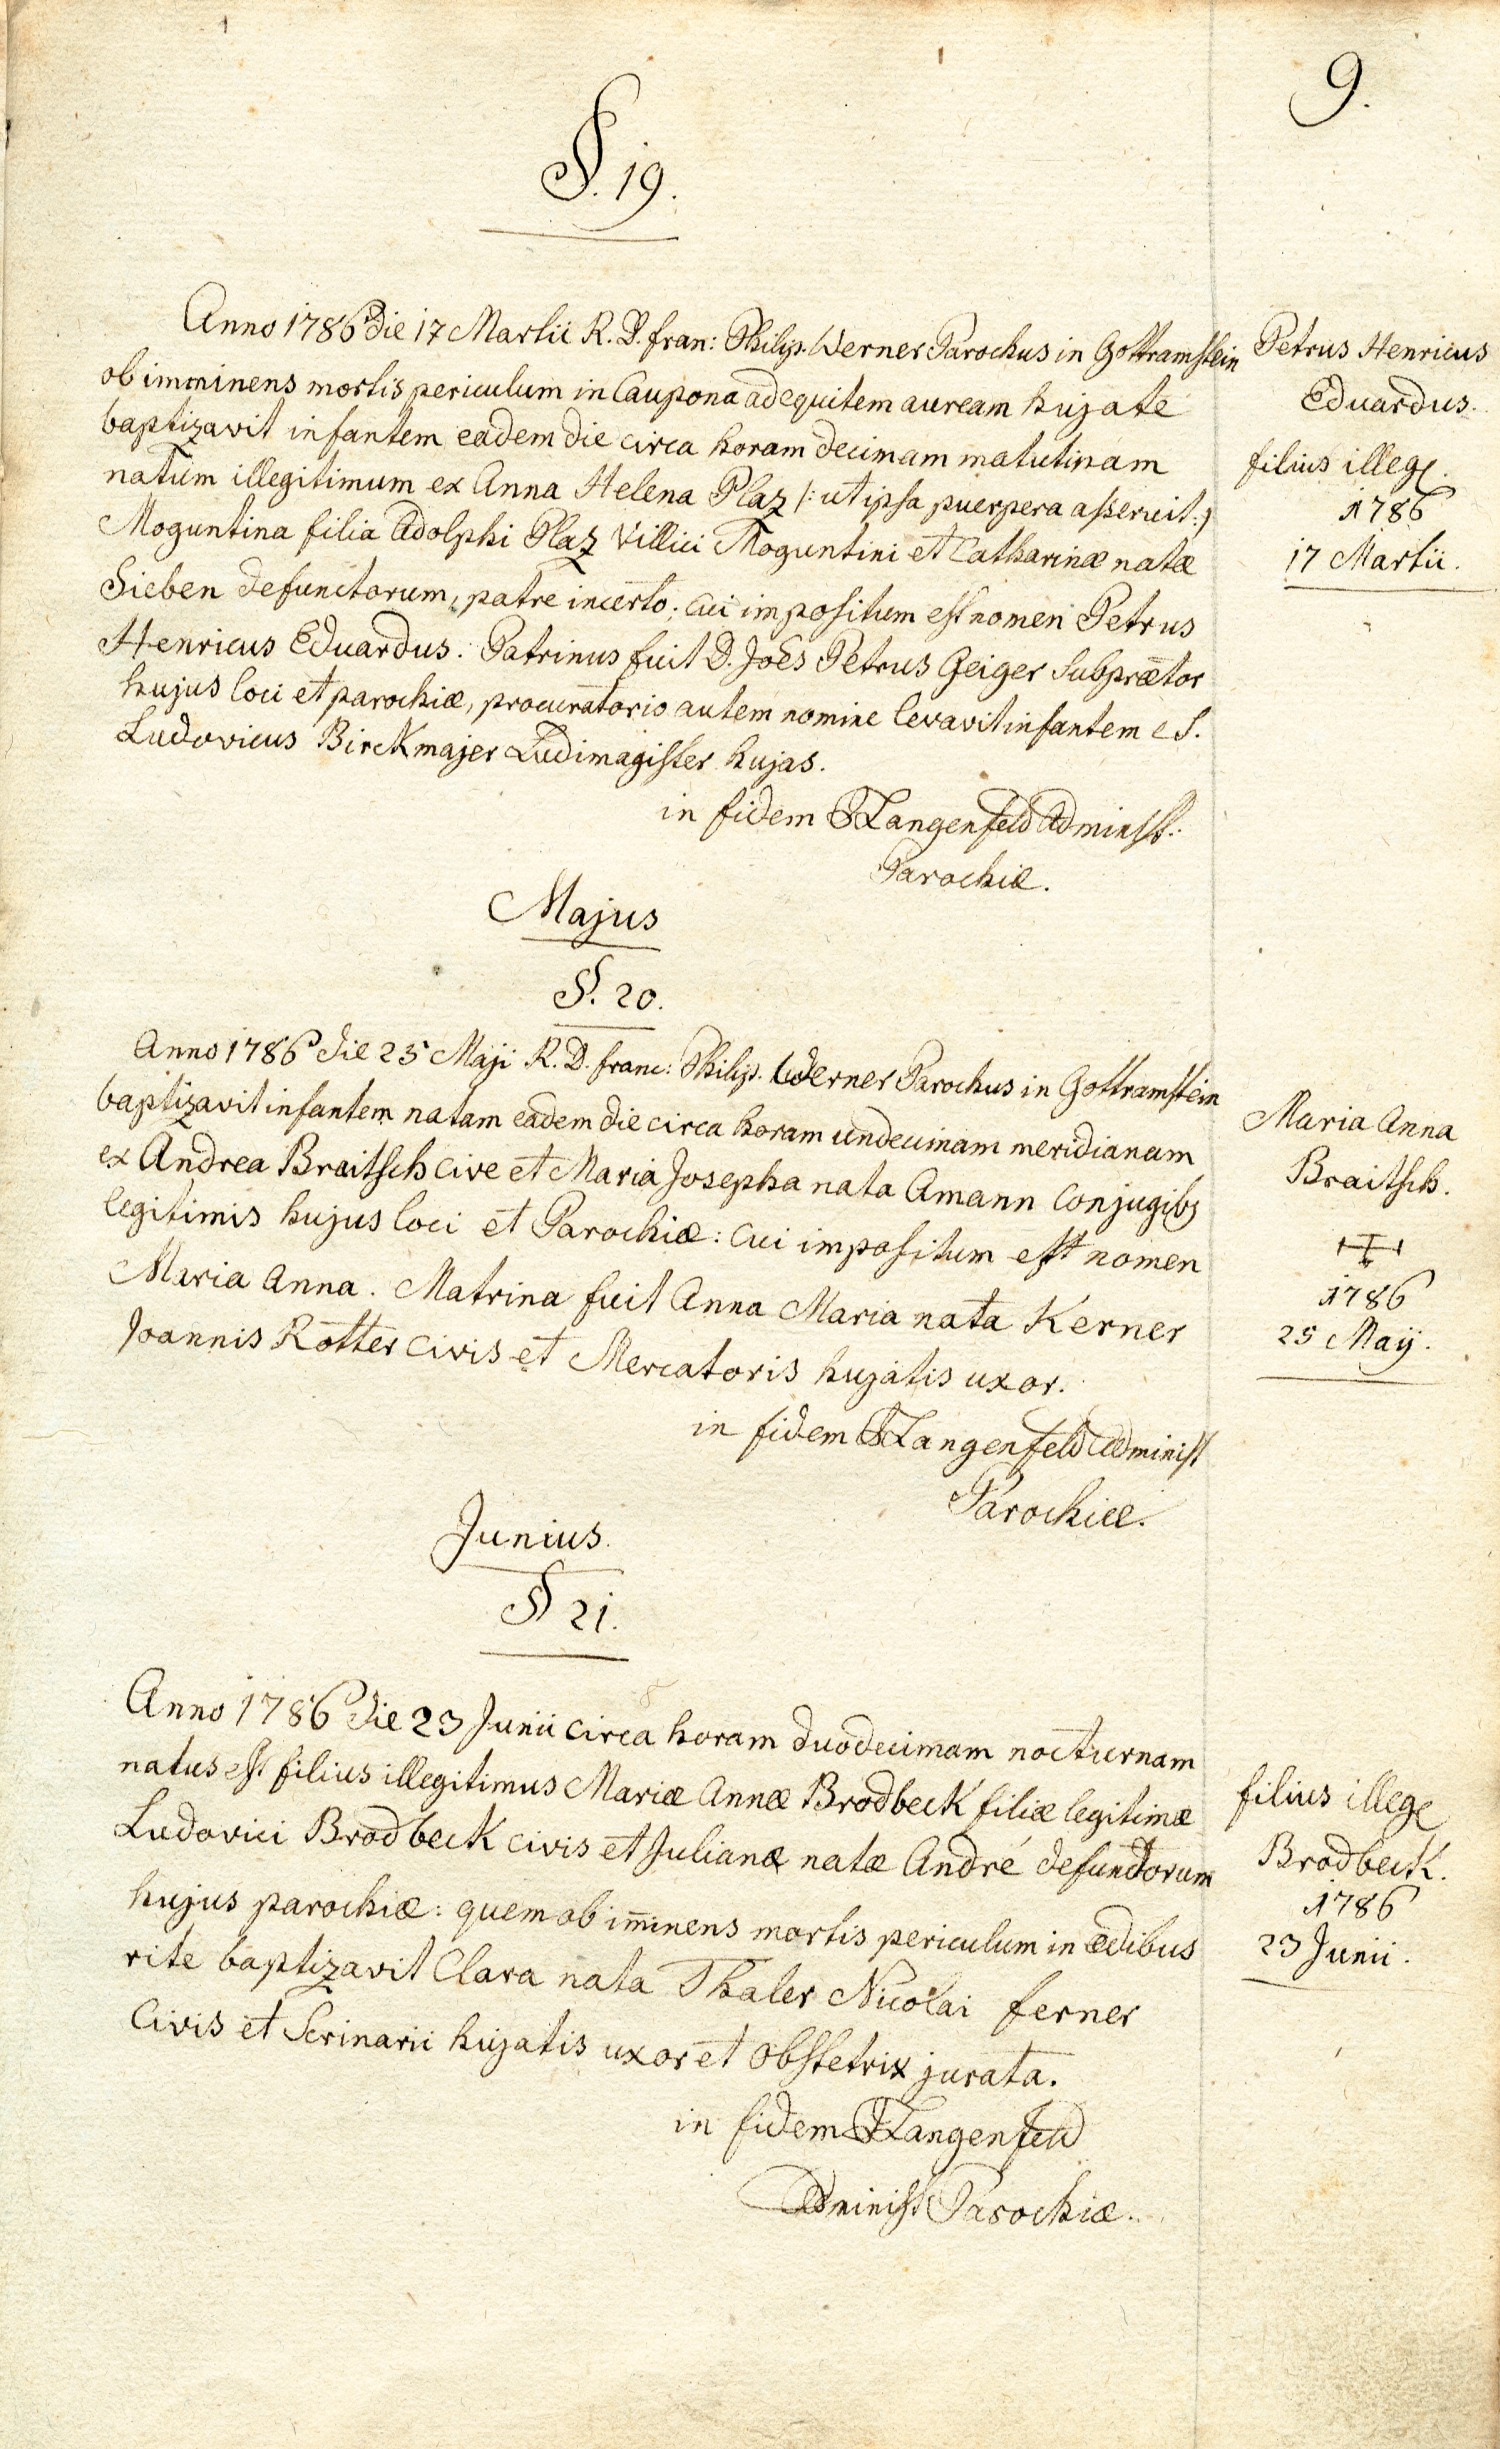 9.
§. 19.
Anno 1786 die 17 Martii R. D. fran: Philip. Werner Parochus in Gottramstein
ob imminens mortis periculum in Caupona ad equitem auream hujate
baptizavit infantem eadem die circa horam decimam matutinam
natum illegitimum ex Anna Helena Plaz /: ut ipsa puerpera asseruit :/
Moguntina filia Adolphi Plaz Villici Moguntini et Catharinæ natæ
Sieben defunctorum, patre incerto; cui impositum est nomen Petrus
Henricus Eduardus. Patrinus fuit D. Joes Petrus Geiger Subprætor
hujus loci et parochiæ, procuratorio autem nomine levavit infantem e S.
Ludovicus Birckmajer Ludimagister hujas.
in fidem Langenfeld Adminst.
Parochiæ.
Petrus Henricus
Eduardus.
filius illeg.
1786
17 Martii.
Majus
§. 20.
Anno 1786 die 25 Maji R. D. franc: Philip. Werner Parochus in Gottramstein
baptizavit infantem natam eadem die circa horam undecimam meridianam
ex Andrea Braitsch cive et Maria Josepha nata Amann conjugibus
legitimis hujus loci et Parochiæ: cui impositum est nomen
Maria Anna. Matrina fuit Anna Maria nata Kerner
Joannis Rotter civis et Mercatoris hujatis uxor.
in fidem Langenfeld Administ
Parochiæ.
Maria Anna
Braitsch.
1786
25 Maij.
Junius.
§ 21.
Anno 1786 die 23 Junii circa horam duodecimam nocturnam
natus est filius illegitimus Mariæ Annæ Brodbeck filiæ legitimæ
Ludovici Brodbeck civis et Julianæ natæ André defunctorum
hujus parochiæ: quem ob im̄inens mortis periculum in ædibus
rite baptizavit Clara nata Thaler Nicolai ferner
Civis et Scrinarii hujatis uxor et Obstetrix jurata.
in fidem Langenfeld
Administ Parochiæ.
filius illeg
Brodbeck.
1786
23 Junii.